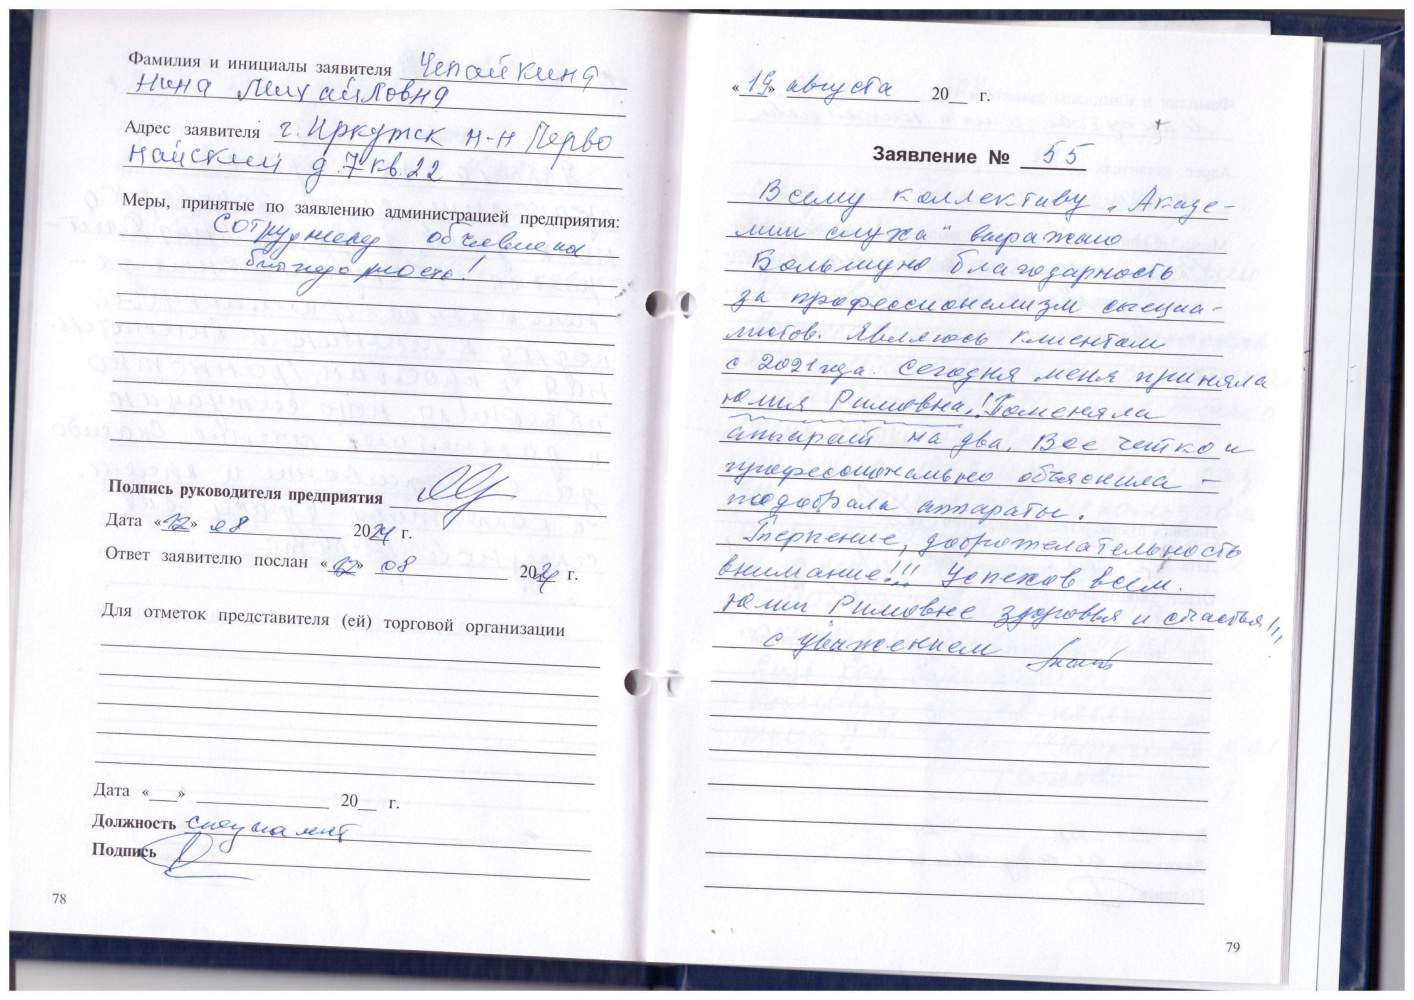 Фамилия и инициалы заявителя Чепайкина
Нина Михайловна
Адрес заявителя г. Иркутск м-н Перво
майский д. 7 кв. 22
Меры, принятые по заявлению администрацией предприятия:
Сотруднику объявлена
благодарность!
Подпись руководителя предприятия
Дата «12» 08 2024 г.
Ответ заявителю послан «12» 08 2024 г.
Для отметок представителя (ей) торговой организации
Дата «___» ______________ 20__ г.
Должность специалист
Подпись
78
«19» августа 20__ г.
Заявление № 55
Всему коллективу „Акаде-
мии слуха" выражаю
Большую благодарность
за профессионализм специа-
листов. Являюсь клиентом
с 2021 года. Сегодня меня приняла
Юлия Римовна! Поменяла
аппарат на два. Все четко и
профессионально объяснила –
подобрала аппараты.
Терпение, доброжелательность
внимание!!! Успехов всем.
Юлии Римовне здоровья и счастья!!!
с уважением
79